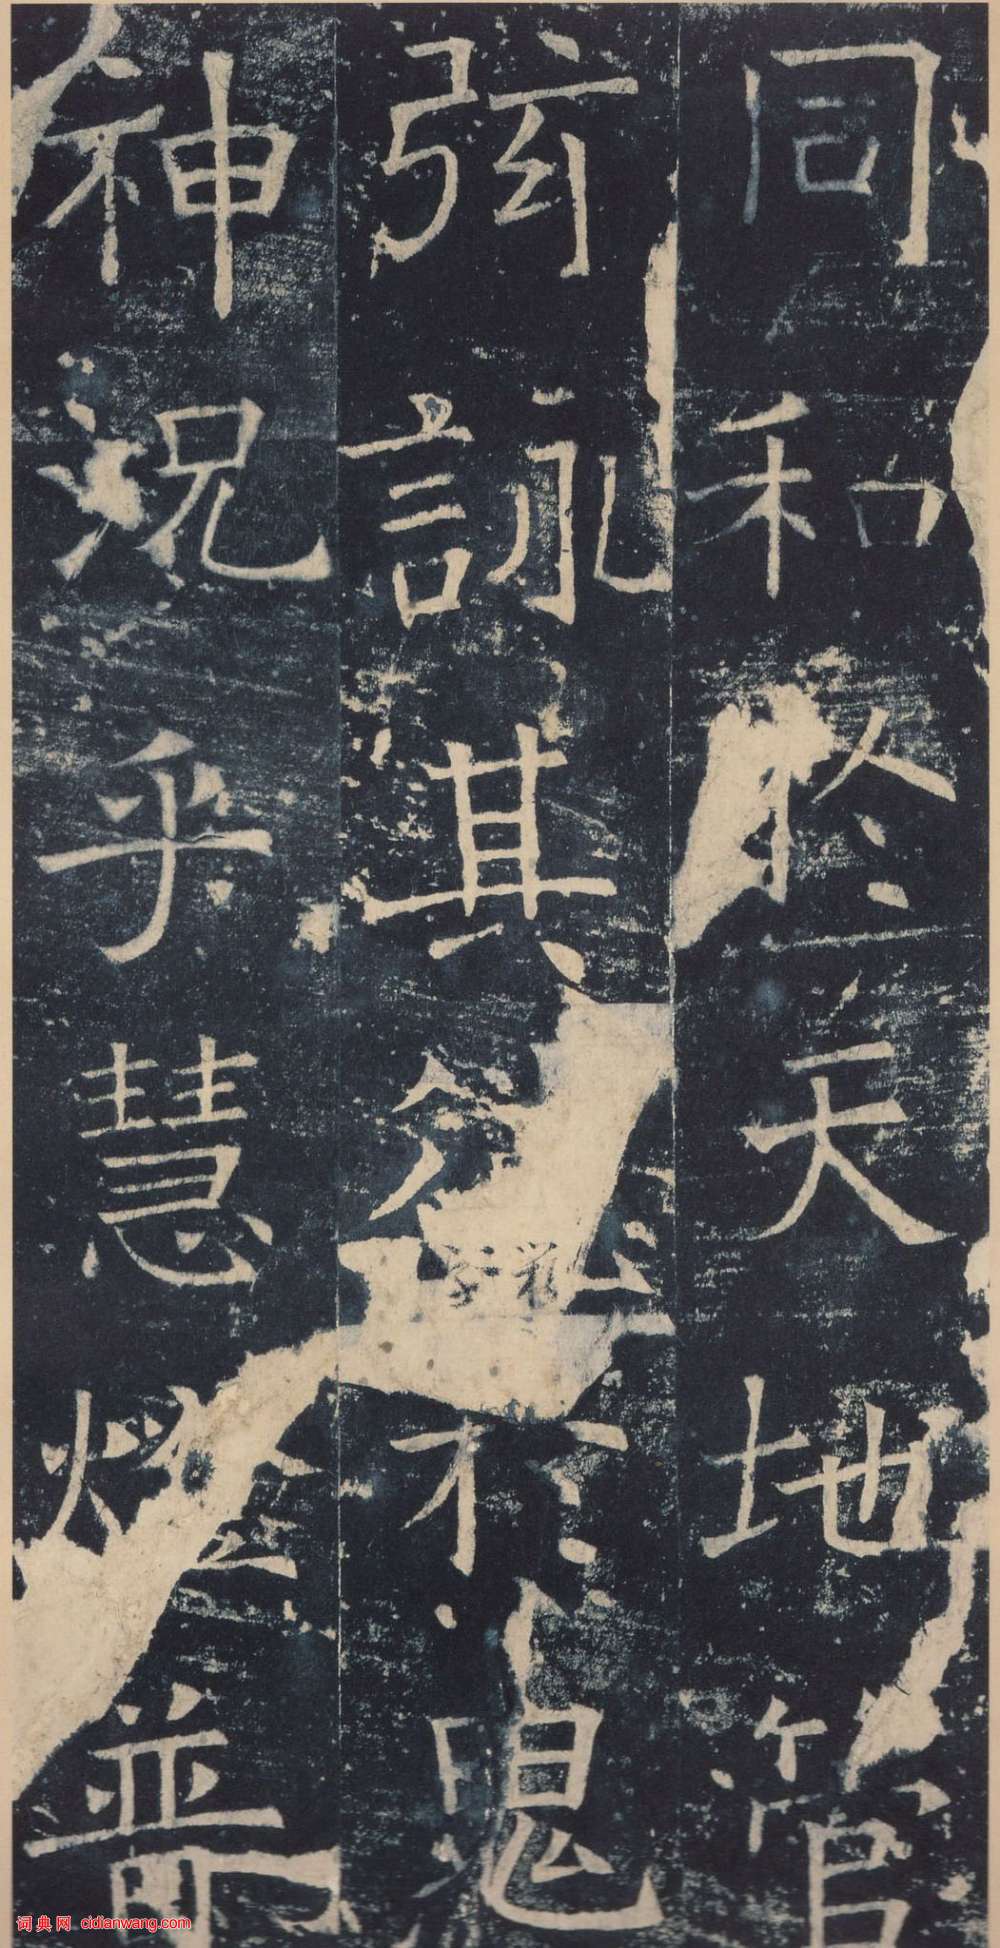 同和於天地管
弦詠其鬼
神況乎慧燈普
词典网 cidianwang.com